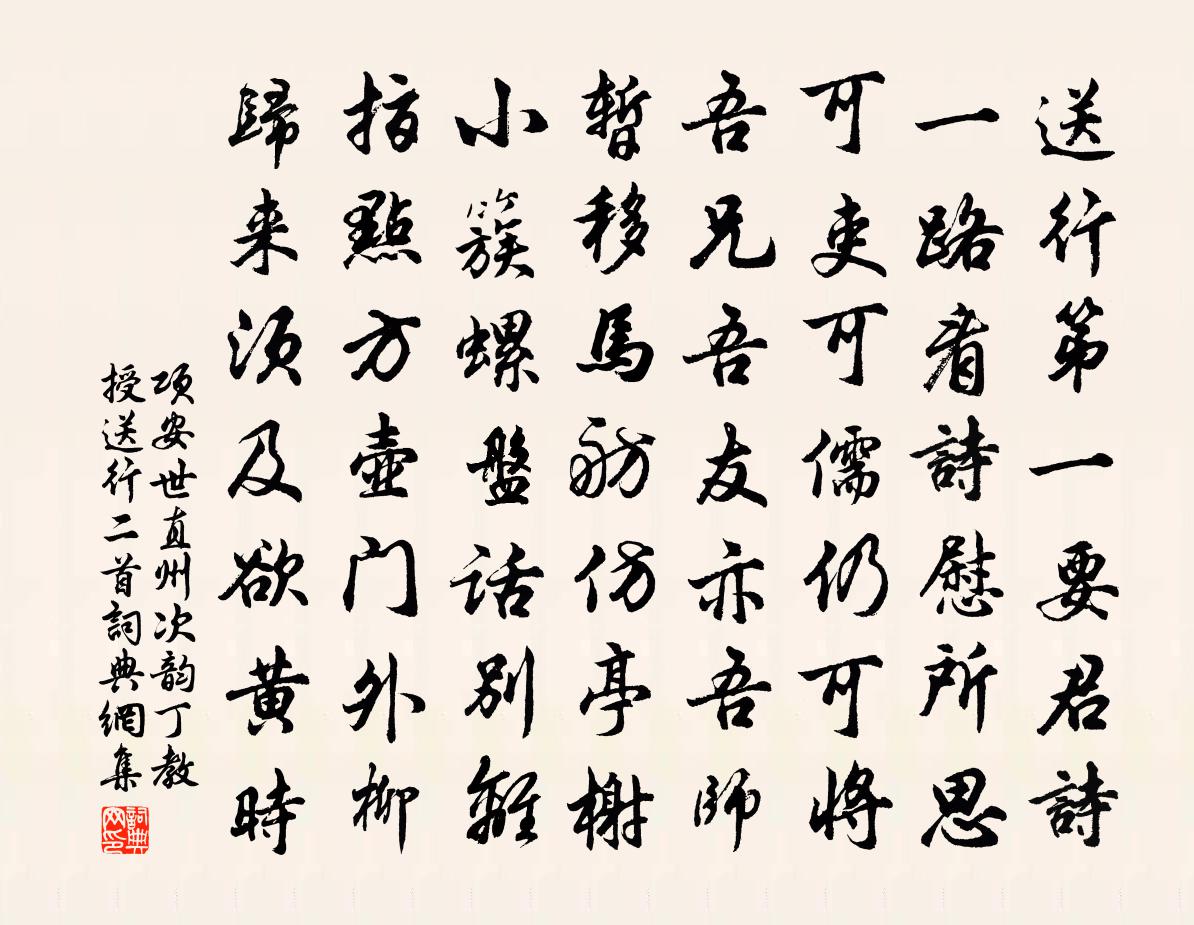 送行第一要君詩
一路看詩慰所思
可吏可儒仍可將
吾兄吾友亦吾師
暫移馬舫仿亭榭
小簇螺盤話別離
指點方壺門外柳
歸来須及欲黄時
項安世直州次韵丁教
授送行二首詞典網集
詞典
网印